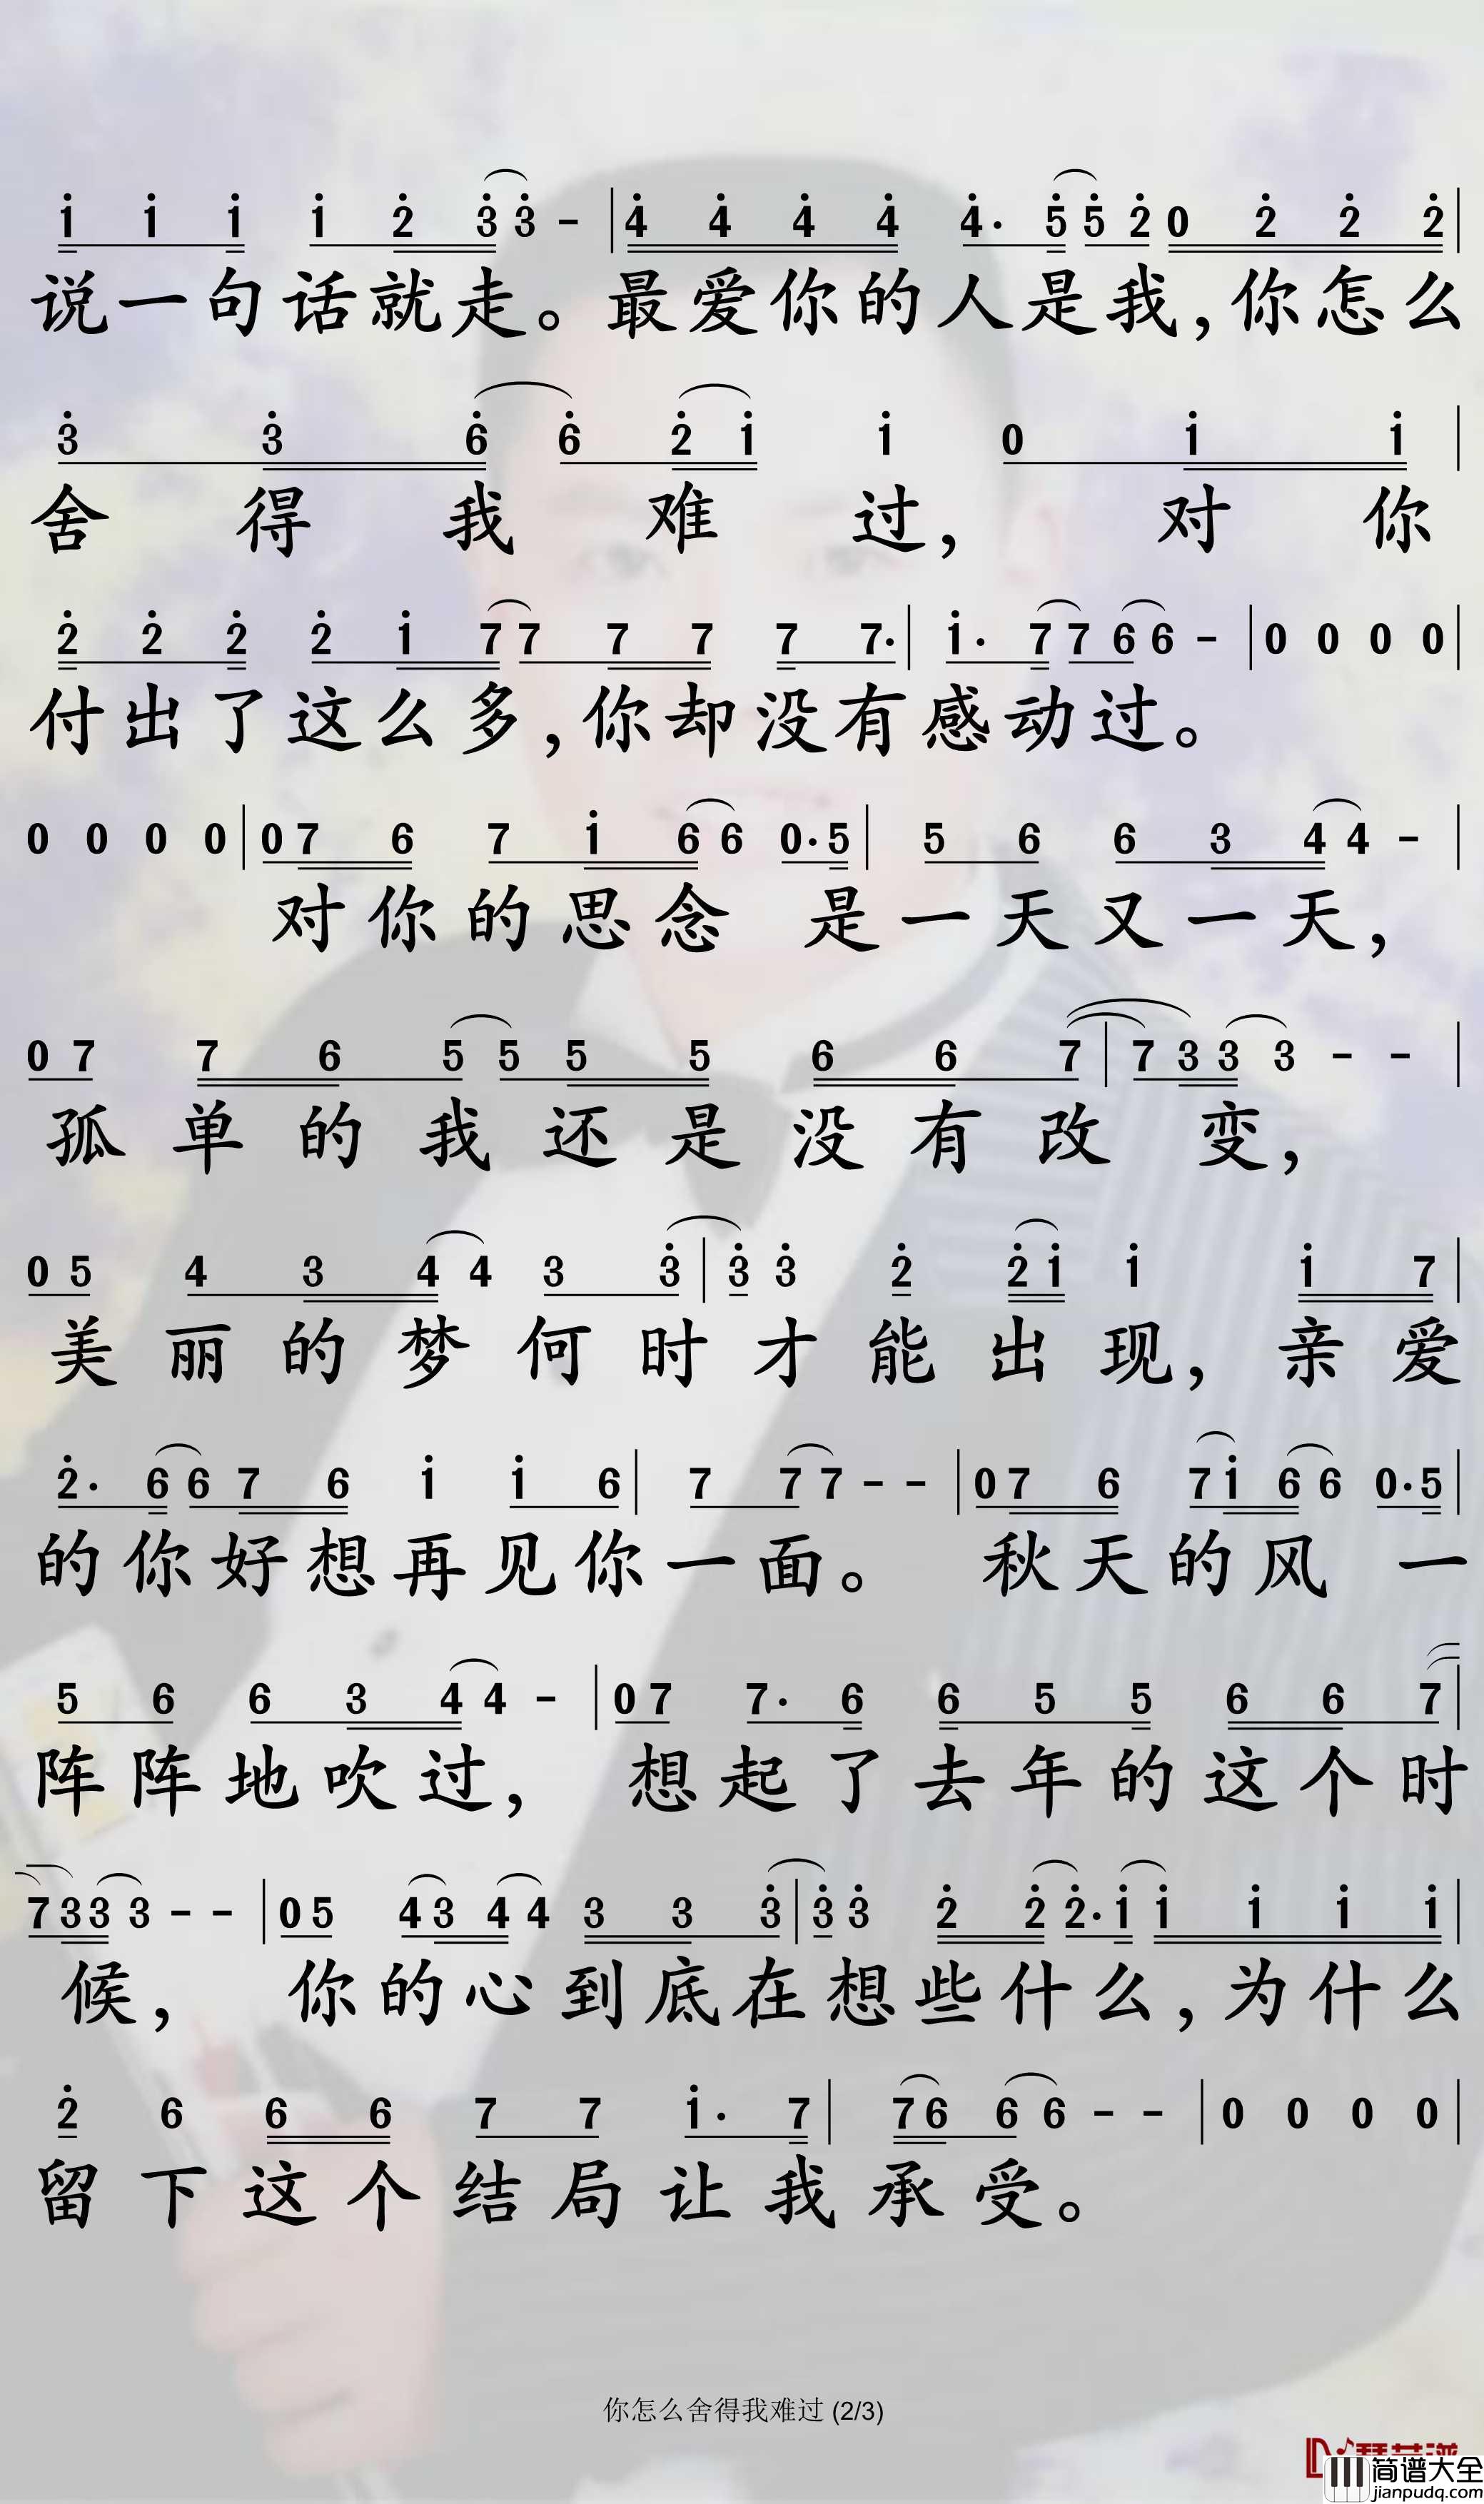 1̇ 1̇ 1̇ 1̇ 2̇ 3̇ 3̇ - | 4̇ 4̇ 4̇ 4̇ 4̇· 5̇ 5̇ 2̇ 0 2̇ 2̇ 2̇ |
说一句话就走。最爱你的人是我,你怎么
3̇ 3̇ 6̇ 6̇ 2̇ 1̇ 1̇ 0 1̇ 1̇ |
舍得我难过,对你
2̇ 2̇ 2̇ 2̇ 1̇ 7 7 7 7 7 7· | 1̇· 7 7 6 6 - | 0 0 0 0 |
付出了这么多,你却没有感动过。
0 0 0 0 | 0 7 6 7 1̇ 6 6 0· 5 | 5 6 6 3 4 4 - |
对你的思念 是一天又一天,
0 7 7 6 5 5 5 5 6 6 7 | 7 3 3 3 - - |
孤单的我还是没有改变,
0 5 4 3 4 4 3 3̇ | 3̇ 3̇ 2̇ 2̇ 1̇ 1̇ 1̇ 7 |
美丽的梦何时才能出现,亲爱
2̇· 6 6 7 6 1̇ 1̇ 6 | 7 7 7 - - | 0 7 6 7 1̇ 6 6 0· 5 |
的你好想再见你一面。 秋天的风 一
5 6 6 3 4 4 - | 0 7 7· 6 6 5 5 6 6 7 |
阵阵地吹过, 想起了去年的这个时
7 3 3 3 - - | 0 5 4 3 4 4 3 3 3̇ | 3̇ 3̇ 2̇ 2̇ 2̇· 1̇ 1̇ 1̇ 1̇ 1̇ |
候, 你的心到底在想些什么,为什么
2̇ 6 6 6 7 7 1̇· 7 | 7 6 6 6 - - | 0 0 0 0 |
留下这个结局让我承受。
你怎么舍得我难过 (2/3)
简谱大全
jianpudq.com